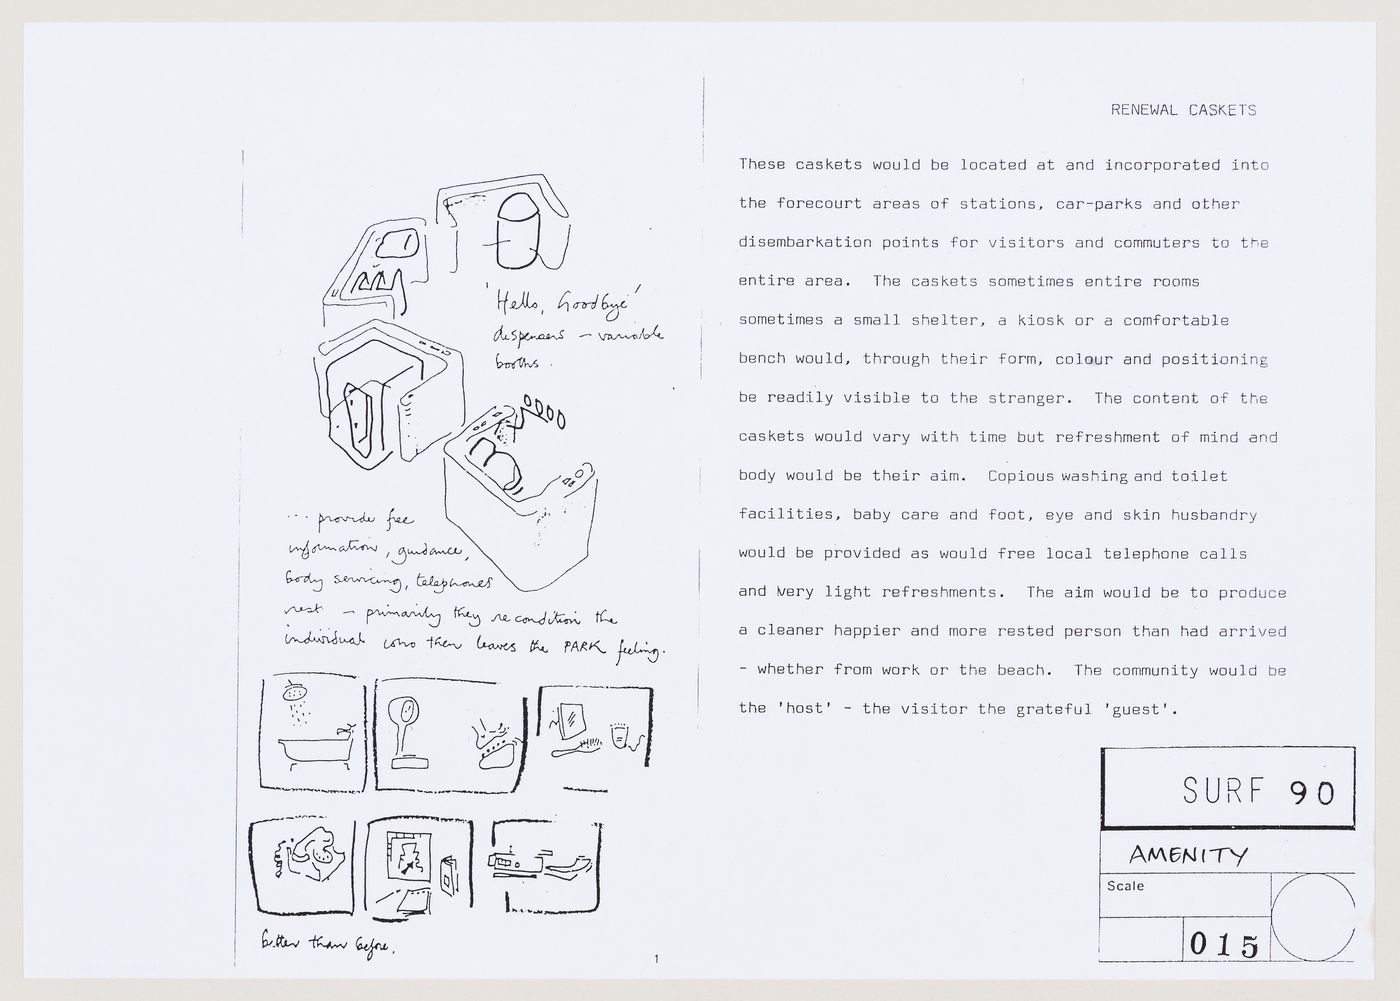 'Hello, Goodbye'
dispensers - variable
booths.
... provide free
information, guidance,
body servicing, telephones
rest - primarily they recondition the
individual who then leaves the PARK feeling.
better than before.
1
RENEWAL CASKETS
These caskets would be located at and incorporated into
the forecourt areas of stations, car-parks and other
disembarkation points for visitors and commuters to the
entire area.  The caskets sometimes entire rooms
sometimes a small shelter, a kiosk or a comfortable
bench would, through their form, colour and positioning
be readily visible to the stranger.  The content of the
caskets would vary with time but refreshment of mind and
body would be their aim.  Copious washing and toilet
facilities, baby care and foot, eye and skin husbandry
would be provided as would free local telephone calls
and very light refreshments.  The aim would be to produce
a cleaner happier and more rested person than had arrived
- whether from work or the beach.  The community would be
the 'host' - the visitor the grateful 'guest'.
SURF 90
AMENITY
Scale
015